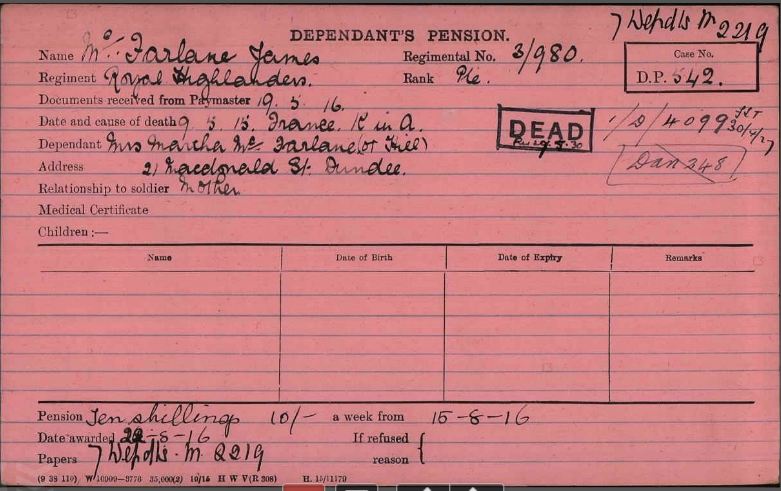 DEPENDANT'S PENSION.
7 Depdts M 2219
Name Mc Farlane James Regimental No. 3/980.
Case No.
Regiment Royal Highlanders. Rank Pte. D.P. 542.
Documents received from Paymaster 19. 5. 16.
Date and cause of death 9. 5. 15. France. K in A.
DEAD
1/D/4099
30/4/27
Dependant Mrs Martha Mc Farlane (or Hill)
Dan 248
Address 21 Macdonald St. Dundee.
Relationship to soldier Mother
Medical Certificate
Children :—
Name Date of Birth Date of Expiry Remarks
Pension Ten shillings 10/- a week from 15-8-16
Date awarded 22-5-16 If refused
Papers 7 Depdts. M 2219 reason {
(9 38 110) W 10909—3776 35,000(2) 10/15 H W V(R 308) H. 15/1179